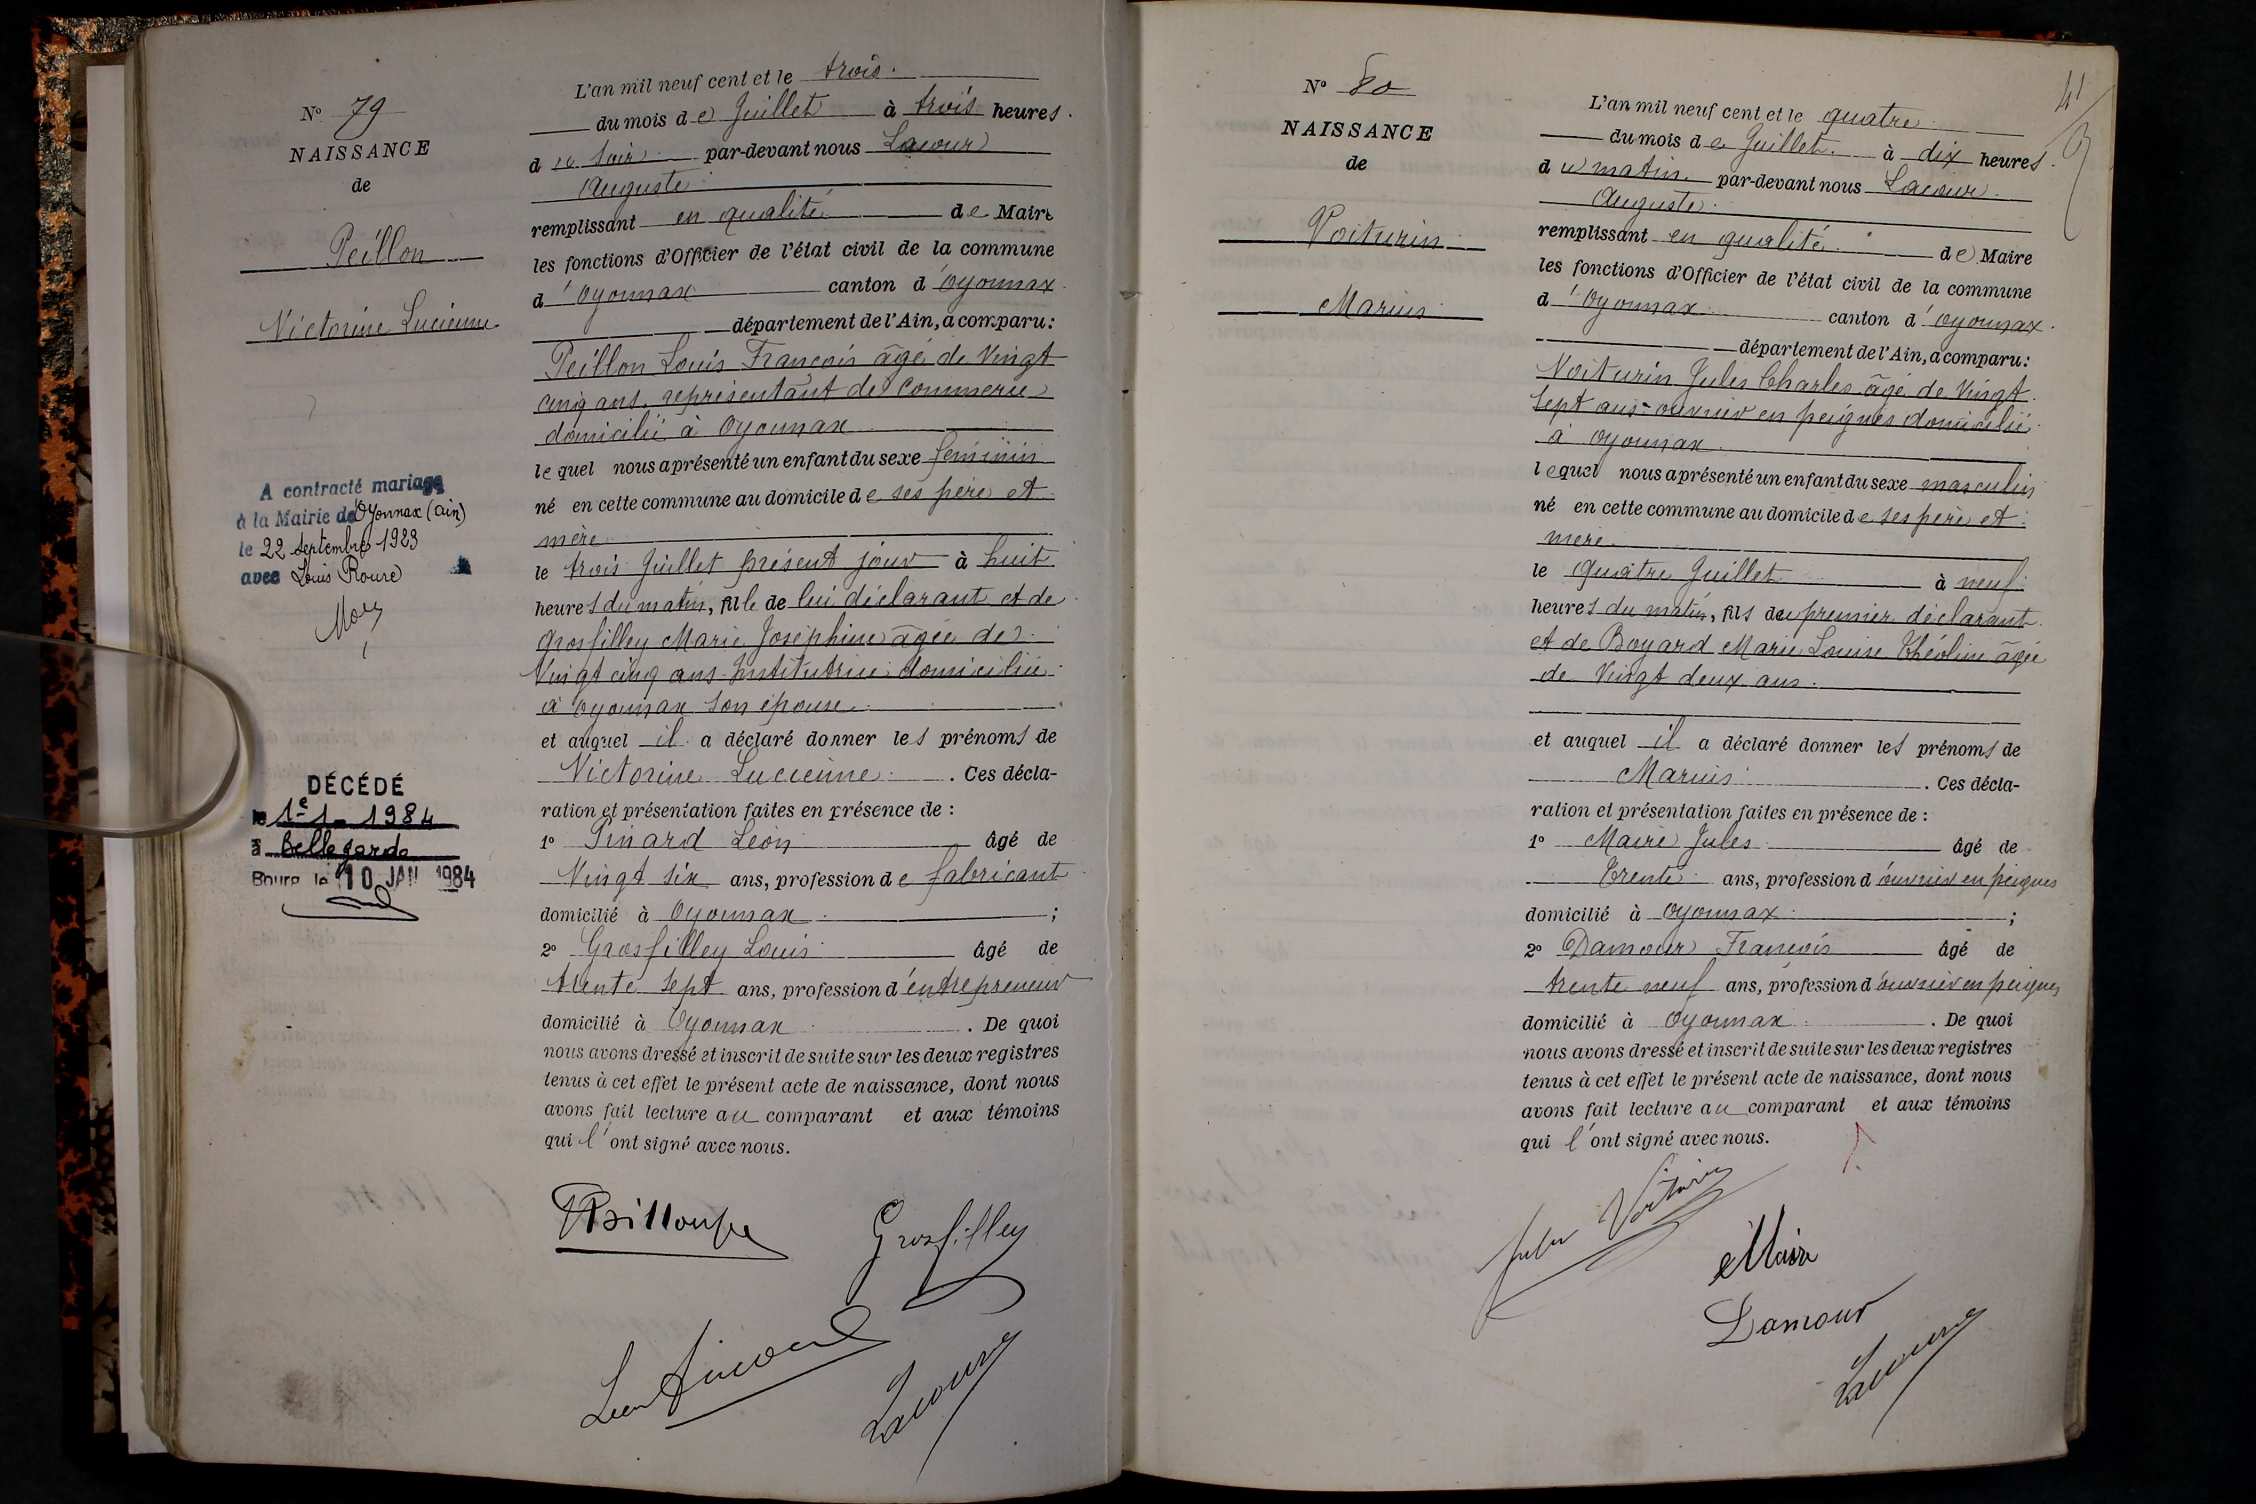 N° 79
NAISSANCE
de
Peillon
Victorine Lucienne
A contracté mariage
à la Mairie de Oyonnax (Ain)
le 22 septembre 1923
avec Louis Roure
DÉCÉDÉ
le 1e-1-1984
à Bellegarde
Bourg le 10 JAN 1984
L'an mil neuf cent et le trois
du mois de Juillet à trois heures.
du soir par-devant nous Lacour
Auguste
remplissant en qualité de Maire
les fonctions d'Officier de l'état civil de la commune
d'Oyonnax canton d'Oyonnax
département de l'Ain, a comparu:
Peillon Louis François âgé de Vingt
cinq ans, représentant de commerce
domicilié à Oyonnax
lequel nous a présenté un enfant du sexe féminin
né en cette commune au domicile de ses père et
mère
le trois Juillet présent jour à huit
heures du matin, fille de lui déclarant et de
Grosfilley Marie Joséphine âgée de
Vingt cinq ans Institutrice domiciliée
à Oyonnax son épouse
et auquel il a déclaré donner les prénoms de
Victorine Lucienne. Ces décla-
ration et présentation faites en présence de :
1° Pinard Léon âgé de
Vingt six ans, profession de fabricant
domicilié à Oyonnax ;
2° Grosfilley Louis âgé de
trente sept ans, profession d'entrepreneur
domicilié à Oyonnax. De quoi
nous avons dressé et inscrit de suite sur les deux registres
tenus à cet effet le présent acte de naissance, dont nous
avons fait lecture au comparant et aux témoins
qui l'ont signé avec nous.
Grosfilley
Lacour
N° 80
NAISSANCE
de
Voiturin
Marius
41
L'an mil neuf cent et le quatre
du mois de Juillet à dix heures.
du matin par-devant nous Lacour
Auguste
remplissant en qualité de Maire
les fonctions d'Officier de l'état civil de la commune
d'Oyonnax canton d'Oyonnax.
département de l'Ain, a comparu:
Voiturin Jules Charles âgé de Vingt
sept ans ouvrier en peignes domicilié
à Oyonnax
lequel nous a présenté un enfant du sexe masculin
né en cette commune au domicile de ses père et
mère
le quatre Juillet à neuf
heures du matin, fils du premier déclarant
et de Boyard Marie Louise Théoline âgée
de Vingt deux ans.
et auquel il a déclaré donner les prénoms de
Marius. Ces décla-
ration et présentation faites en présence de :
1° Maire Jules âgé de
Trente ans, profession d'ouvrier en peignes
domicilié à Oyonnax ;
2° Damour François âgé de
trente neuf ans, profession d'ouvrier en peignes
domicilié à Oyonnax. De quoi
nous avons dressé et inscrit de suite sur les deux registres
tenus à cet effet le présent acte de naissance, dont nous
avons fait lecture au comparant et aux témoins
qui l'ont signé avec nous.
Jules Voiturin
Maire
Damour
Lacour